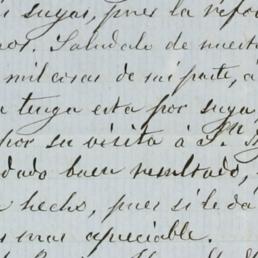 suyas, pues la refor
nos. Saludalo de nuestr
mil cosas de mi parte, a
tenga esta por suya
por su visita á Sn
dado buen resultado,
hecho, pues si le da
mas apreciable.